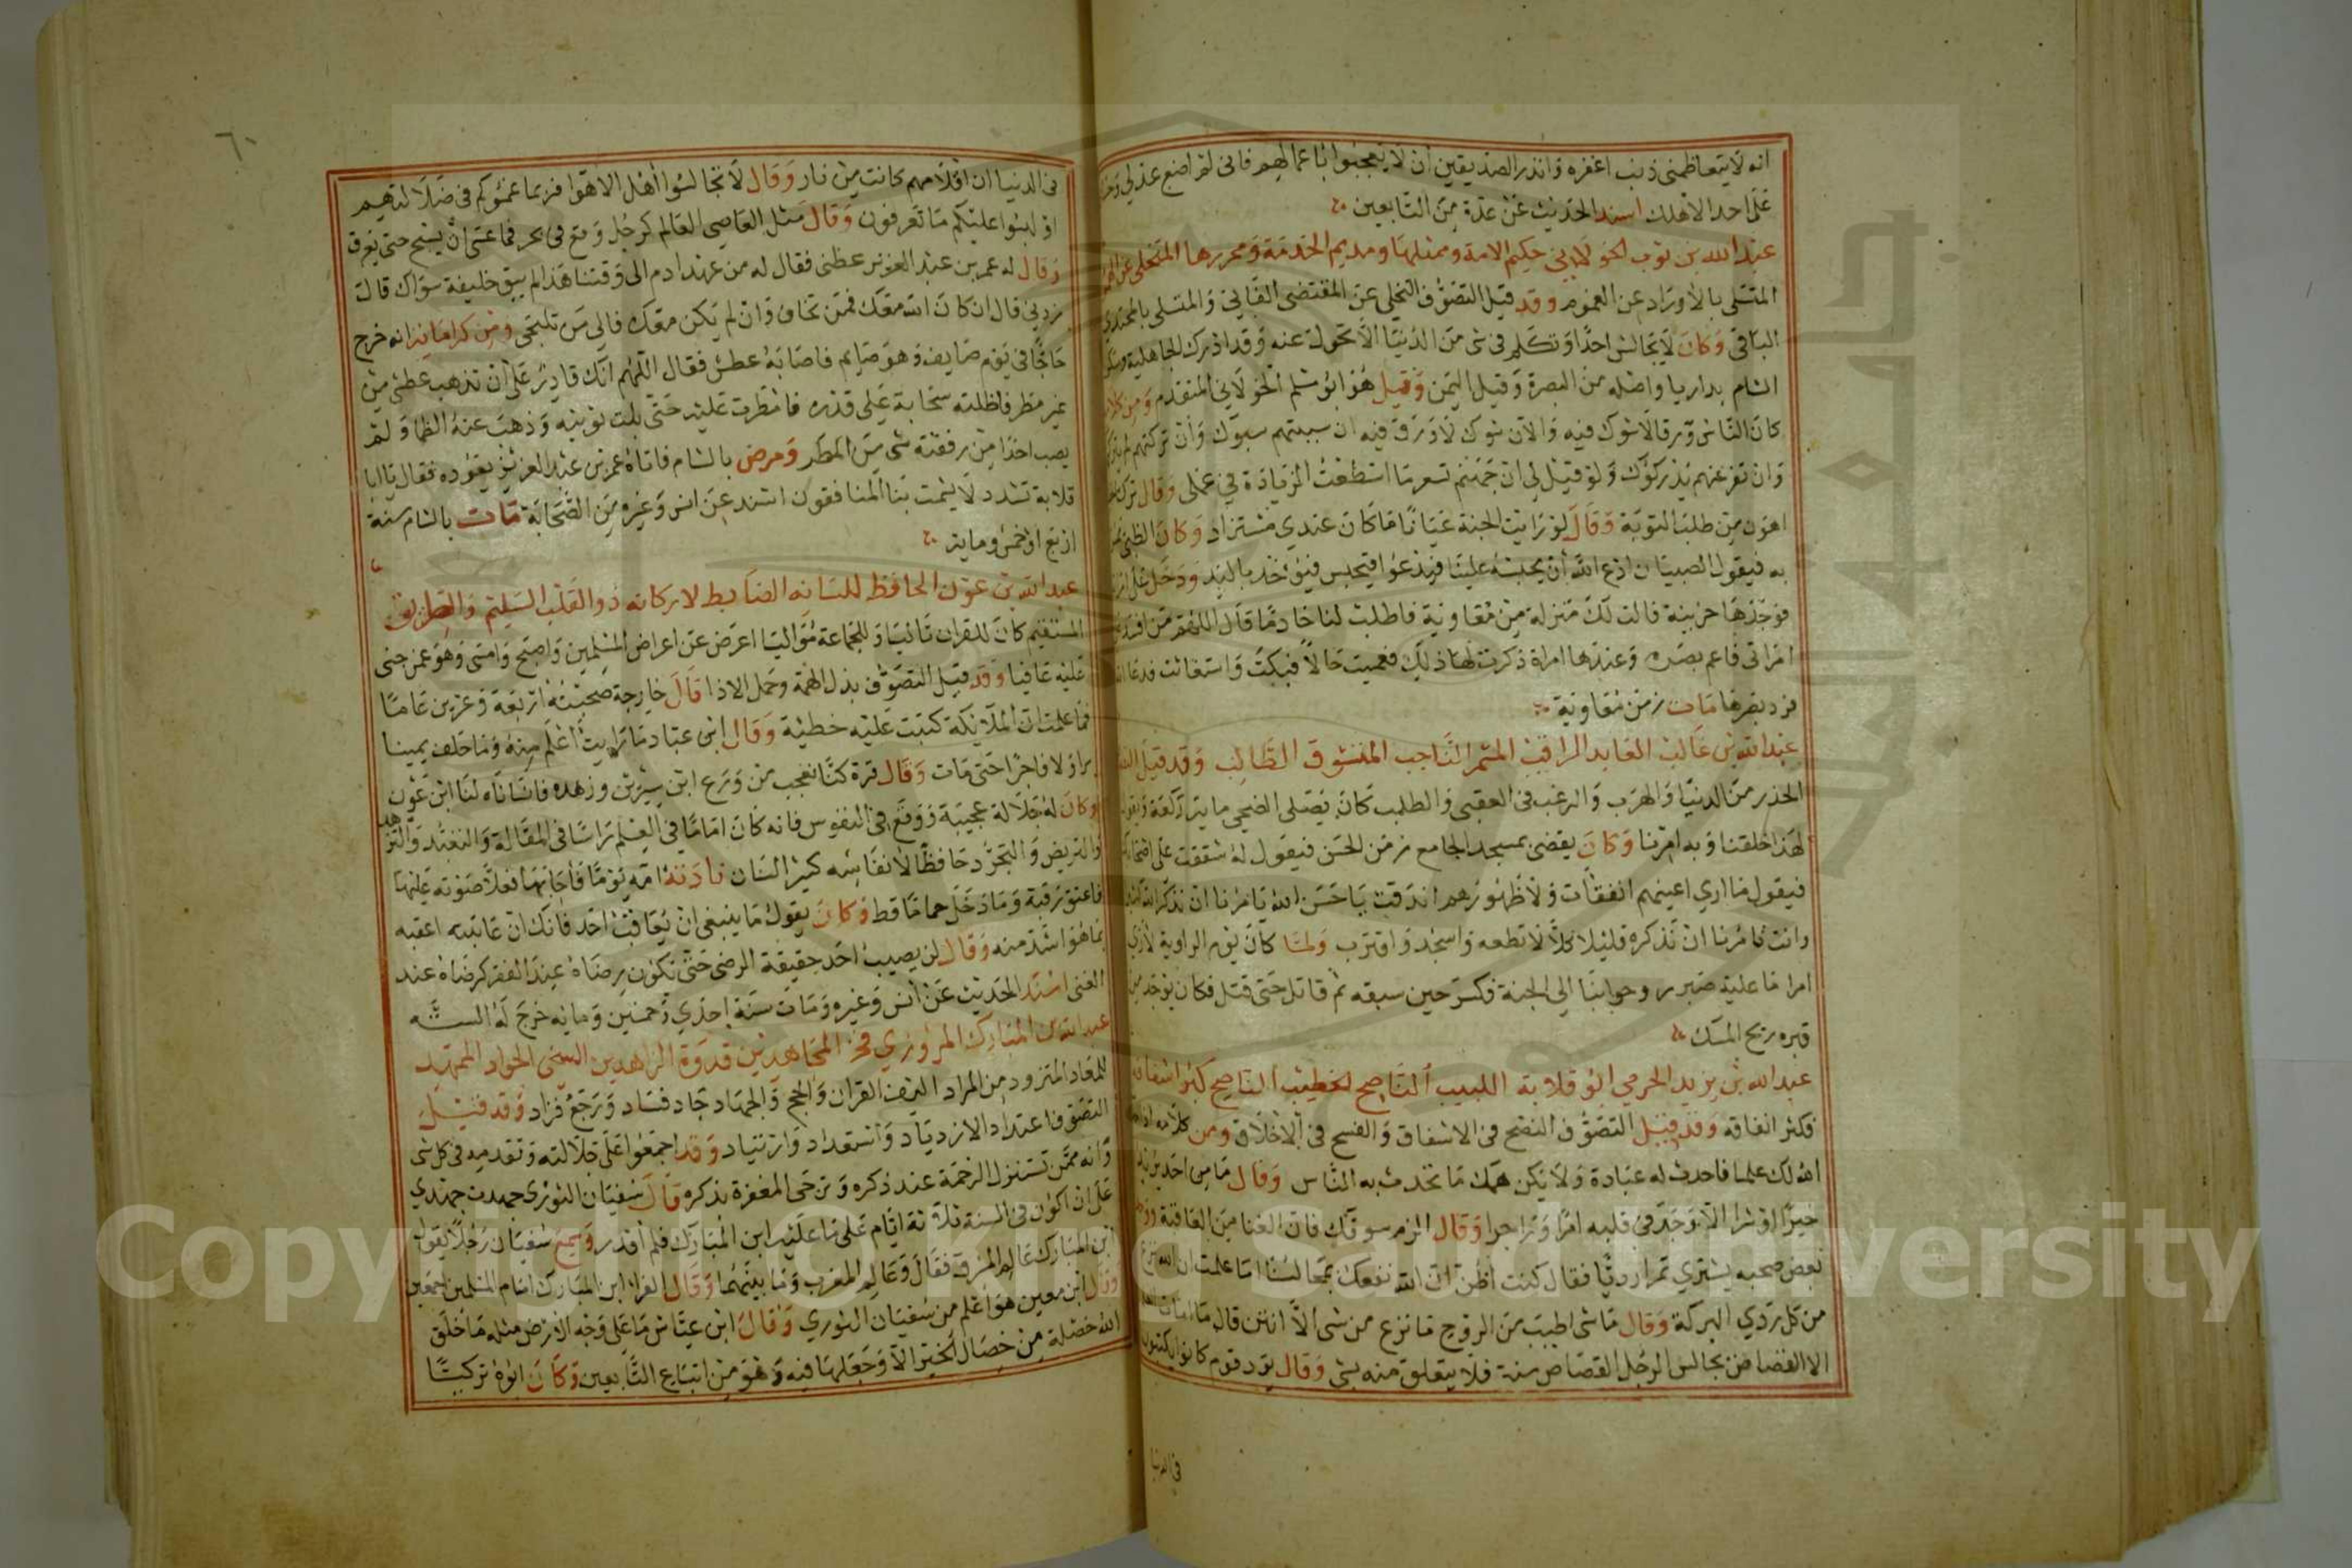 انه لا يتعاظمني ذنب اغفره وانذر الصديقين ان لا يعجبوا باعمالهم فاني لم اضع عدلي
على احد الا هلك اسند الحديث عن عدة من التابعين
عبد الله بن ثوب الخولاني حكيم الامة وممثلها ومديم الخدمة ومحررها المتخلي عن
المتسلي بالاوراد عن الهموم وقد قيل التصوف التخلي عن المقتضي الفاني والمتسلي
الباقي وكان لا يجالس احدا وتكلم في شي من الدنيا الا تحول عنه وقد ادرك الجاهلية
الشام بداريا واصله من البصرة وقيل اليمن وقيل هو ابو مسلم الخولاني المتقدم
كان الناس ورقا لا شوك فيه والان شوك لا ورق فيه ان سببتهم سبوك وان تركتهم لم
وان تفر عنهم يدركوك ولو قيل لي ان جهنم تسعر ما استطعت الزيادة في عملي وقال ترك
اهون من طلب التوبة وقال لو رايت الجنة عيانا ما كان عندي مستزاد وكان الظبي
به فيقول الصبيان ادع الله ان يحبسه علينا فيدعوا فيحبس فيؤخذ باليد ودخل على
فوجدها حزينة قالت لك منزلة من معاوية فاطلب لنا خادما قال اللهم من افسد
امراتي فاعم بصره وعندها امراة ذكرت لها ذلك فعميت حالا فبكت واستغاثت فدعا
فرد بصرها مات زمن معاوية
عبد الله بن غالب العابد الراقب المشمر الناجب المتشوق الطالب وقد قيل
الحذر من الدنيا والهرب والرغب في العقبى والطلب كان يصلي الضحى ماية ركعة
لهذا خلقنا وبه امرنا وكان يقضي بمسجد الجامع زمن الحسن فيقول له شققت على
فيقول ما اري اعينهم انفقات ولا ظهورهم اندقت يا حسن الله يامرنا ان نذكر
وانت تامرنا ان نذكره قليلا كلا لا تطعه واسجد واقترب ولما كان يوم الزاوية
امرا ما عليه صبر روحوا بنا الى الجنة فكسر حين سيفه ثم قاتل حتى قتل فكان يوجد من
قبره ريح المسك
عبد الله بن يزيد الجرمي ابو قلابة اللبيب الناصح الخطيب الناصح كثر اشفاقه
فكثر انفاقه وقد قيل التصوف النصح في الاشفاق والفسح في الاخلاق ومن كلامه
الله لك علما فاحدث له عبادة ولا يكن همك ما تحدث به الناس وقال ما من احد
خيرا او شرا الا وجد في قلبه امرا وزاجرا وقال الزم سوقك فان الغنا من العافية
بعض صحبه يشتري تمرا رديا فقال كنت اظن ان الله نفعك بمجالسنا اما علمت ان الله نزع
من كل ردي البركة وقال ما شي اطيب من الروح ما نزع من شي الا انتن قال ما امات
الا القصاص يجالس الرجل القصاص سنة فلا يتعلق منه بشي وقال
في الدنيا
٦٠
في الدنيا ان اقلامهم كانت من نار وقال لا تجالسوا اهل الاهوا فربما غمسوكم في ضلالتهم
او لبسوا عليكم ما تعرفون وقال مثل العاصي العالم كرجل وقع في بحر فما عسى ان يسبح حتى يغرق
وقال له عمر بن عبد العزيز عظني فقال له من عهد ادم الى وقتنا هذا لم يبق خليفة سواك قال
زدني قال ان كان الله معك فممن تخاف وان لم يكن معك فالى من تلتجي ومن كراماته انه خرج
حاجا في يوم صايف وهو صايم فاصابه عطش فقال اللهم انك قادر على ان تذهب عطشي من
غير مطر فاظلته سحابة على قدره فامطرت عليه حتى بلت ثوبيه وذهب عنه الظما ولم
يصب احدا من رفقته شي من المطر ومرض بالشام فاتاه عمر بن عبد العزيز يعوده فقال يا ابا
قلابة تشدد لا يشمت بنا المنافقون اسند عن انس وغيره من الصحابة مات بالشام سنة
اربع او خمس وماية
عبد الله بن عون الحافظ للسانه الضابط لاركانه ذو القلب السليم والطريق
المستقيم كان للقران تاليا وللجماعة مواليا اعرض عن اعراض المسلمين واصبح وامسى وهو عمن جنى
عليه عافيا وقد قيل التصوف بذل الهمة وحمل الاذا قال خارجة صحبته اربعة وعشرين عاما
فما علمت ان الملايكة كتبت عليه خطيئة وقال ابن عباد ما رايت اعلم منه وما حلف يمينا
برا ولا فاجرا حتى مات وقال قرة كنا نعجب من ورع ابن سيرين وزهده فانساناه لنا ابن عون
وكان له جلالة عجيبة ووقع في النفوس فانه كان اماما في العلم راسا في المقالة والتعبد والتزهد
والتربص والتجرد حافظا لانفاسه كبير الشان نادته امه يوما فاجابها فعلا صوته عليها
فاعتق رقبة وما دخل حماما قط وكان يقول ما ينبغي ان يعاقب احد فانك ان عاتبته اعقبه
بما هو اشد منه وقال لن يصيب احد حقيقة الرضى حتى تكون رضاه عند الفقر كرضاه عند
الغنى اسند الحديث عن انس وغيره ومات سنة احدي وخمسين وماية خرج له الستة
عبد الله بن المبارك المروزي فخر المجاهدين قدوة الزاهدين السخي الجواد الممهد
للمعاد المتزود من المراد اليف القران والحج والجهاد جاد فساد ورجع فزاد وقد قيل
التصوف اعتداد الازدياد واستعداد وارتياد وقد اجمعوا على جلالته وتقدمه في كل شي
وانه ممن تستنزل الرحمة عند ذكره وترجى المغفرة بذكره قال سفيان الثوري جهدت جهدي
على ان اكون في السنة ثلاثة ايام على ما عليه ابن المبارك فلم اقدر وسمع سفيان رجلا يقول
ابن المبارك عالم المشرق فقال وعالم المغرب وما بينهما وقال الفزاري ابن المبارك امام المسلمين اجمعين
وقال ابن معين هو اعلم من سفيان الثوري وقال ابن عياش ما على وجه الارض مثله ما خلق
الله خصلة من خصال الخير الا وجعلها فيه وهو من اتباع التابعين وكان ابوه تركيا
Copyright © King Saud University